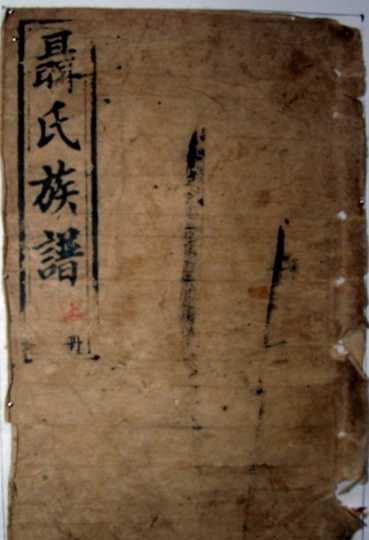 聶氏族譜
上册